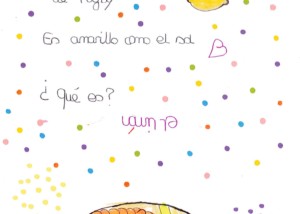 Es amarillo como el sol
¿Qué es?
EL Limón